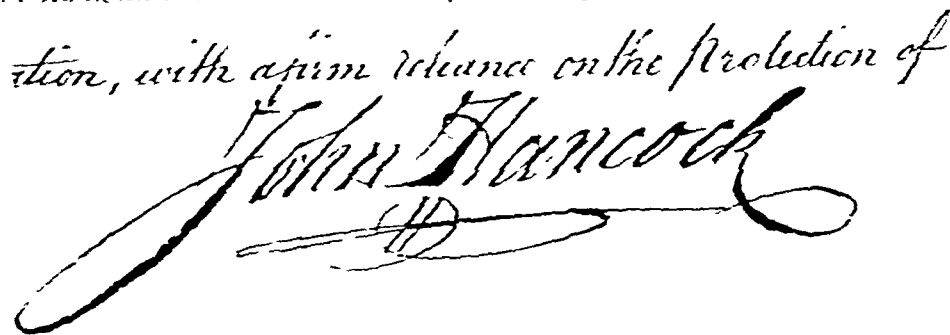 ation, with a firm reliance on the Protection of
John Hancock